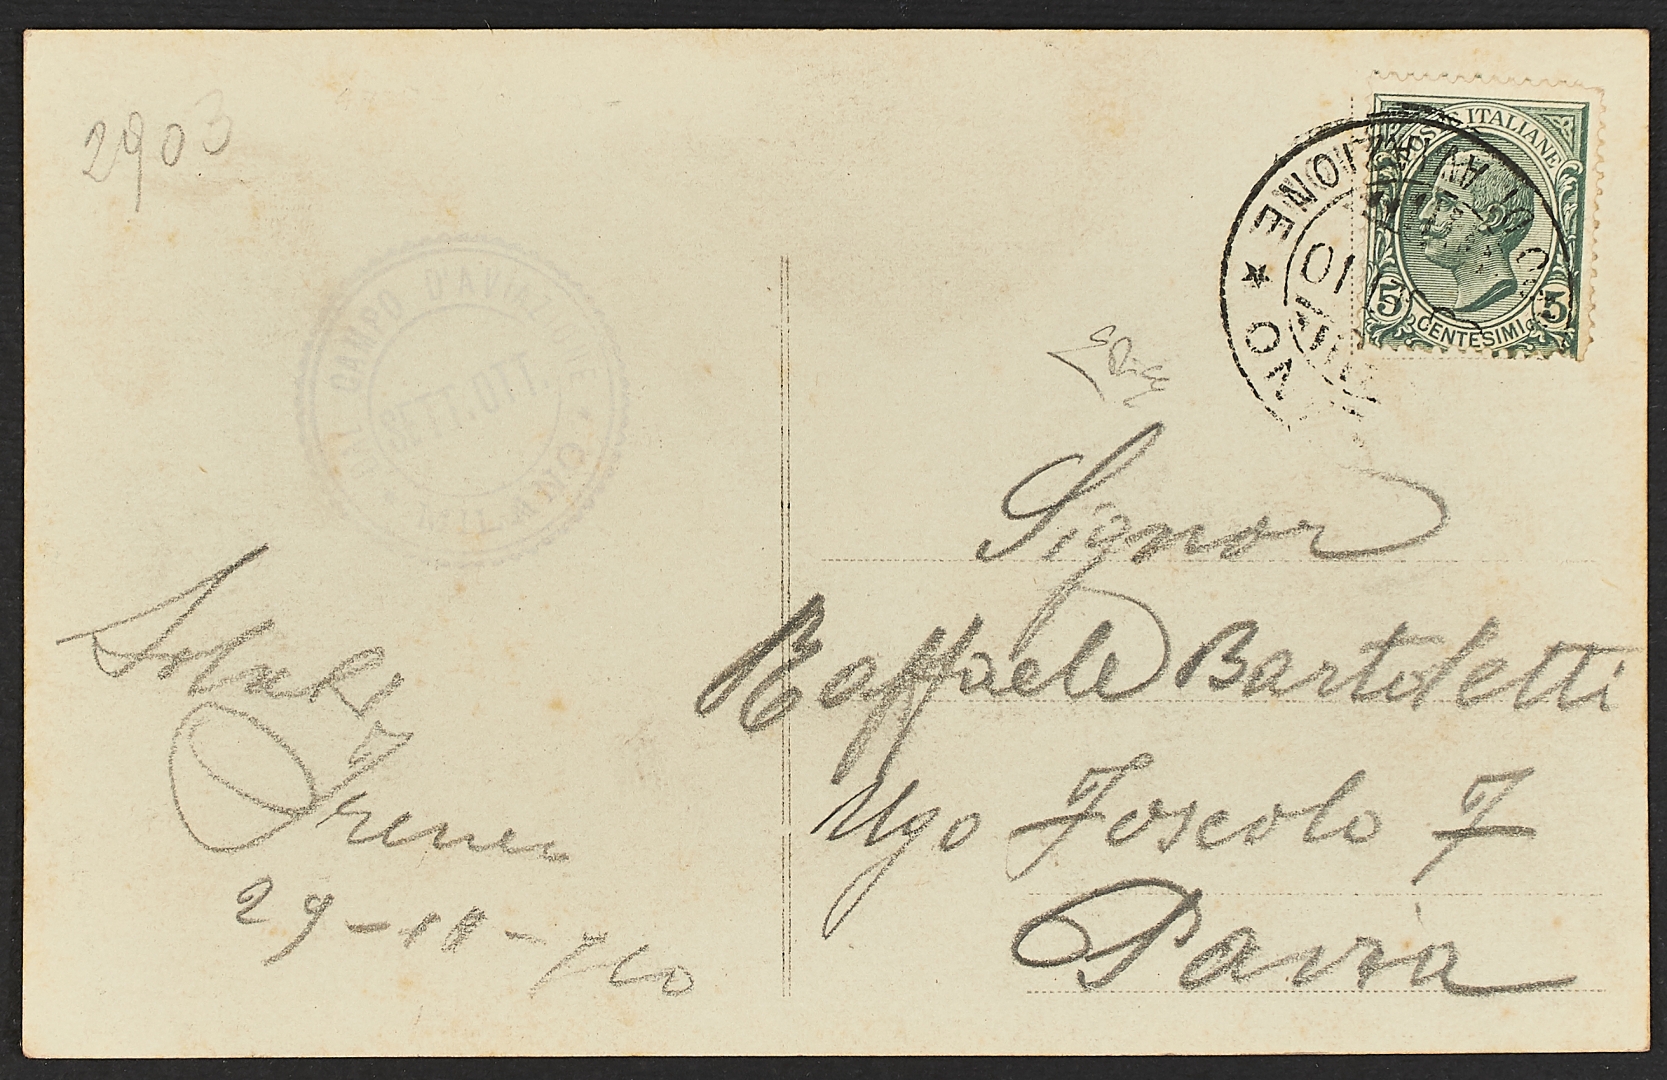 2903
AL CAMPO D'AVIAZIONE
SETT. OTT.
MILANO
POSTE ITALIANE
5 CENTESIMI 5
AVIAZIONE ★
10
Signor
Raffaele Bartoletti
Ugo Foscolo 7
Pavia
Saluti
29-